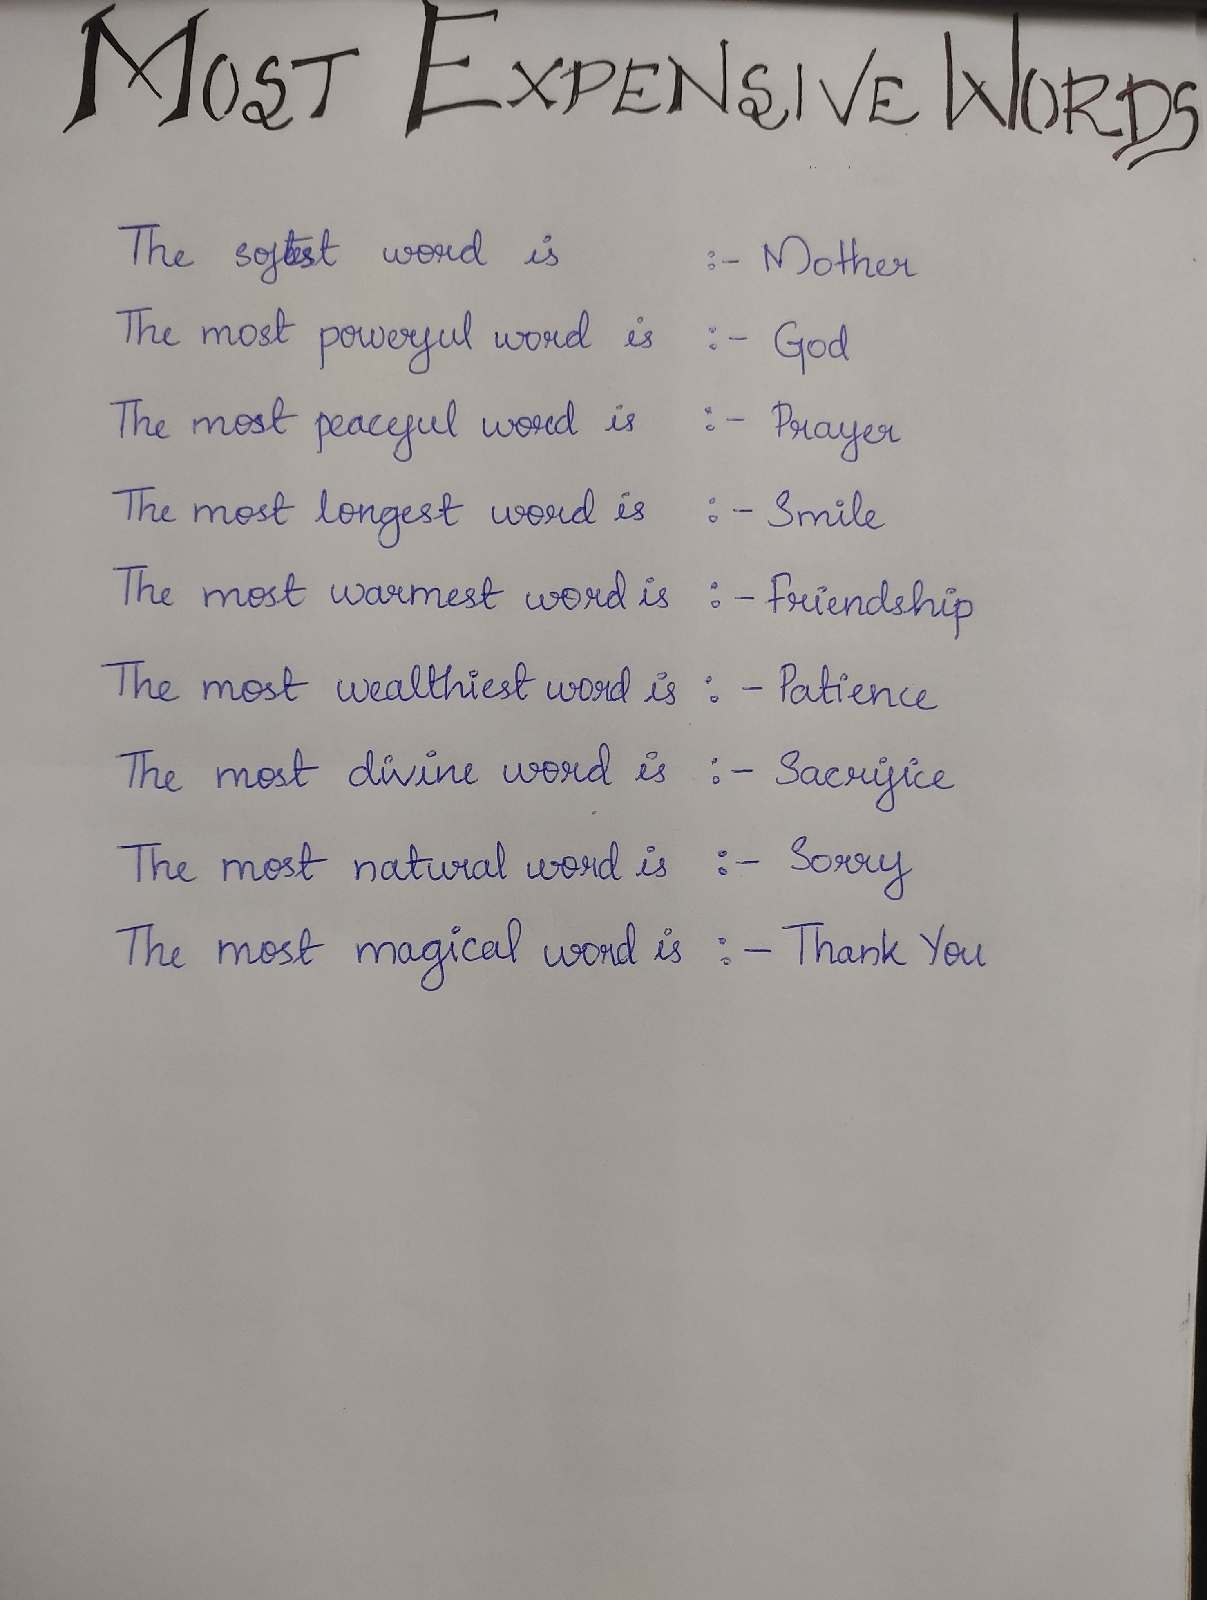 MOST EXPENSIVE WORDS
The softest word is :- Mother
The most powerful word is :- God
The most peaceful word is :- Prayer
The most longest word is :- Smile
The most warmest word is :- Friendship
The most wealthiest word is :- Patience
The most divine word is :- Sacrifice
The most natural word is :- Sorry
The most magical word is :- Thank You